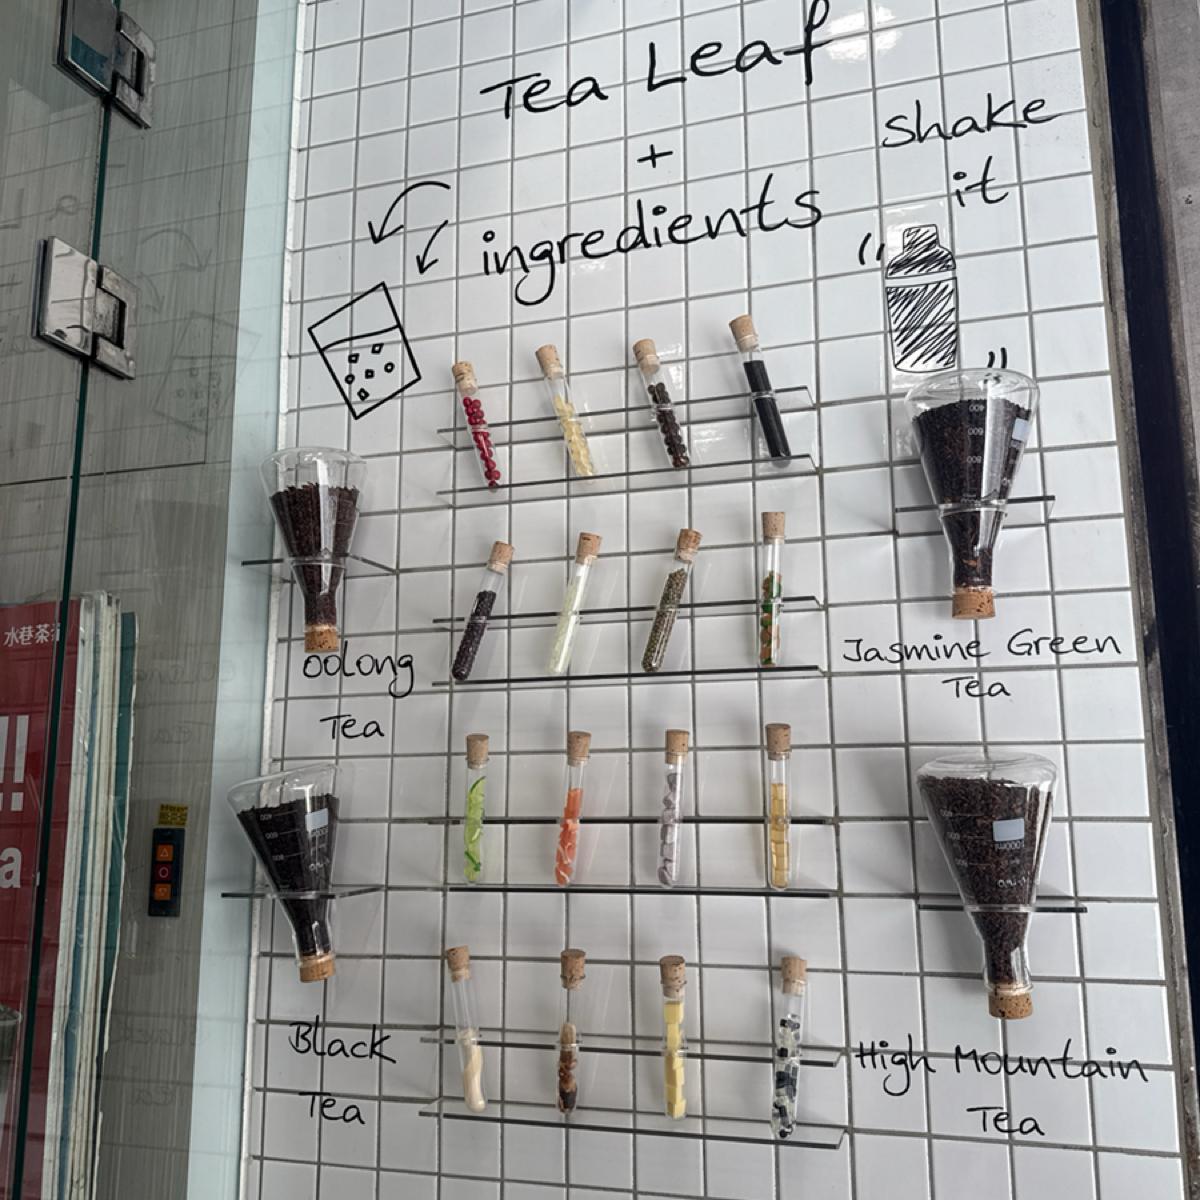 Tea Leaf
+
ingredients
shake
it
oolong
Tea
Jasmine Green
Tea
Black
Tea
High Mountain
Tea
水巷茶
!!
a.
400
600
800
1000ml